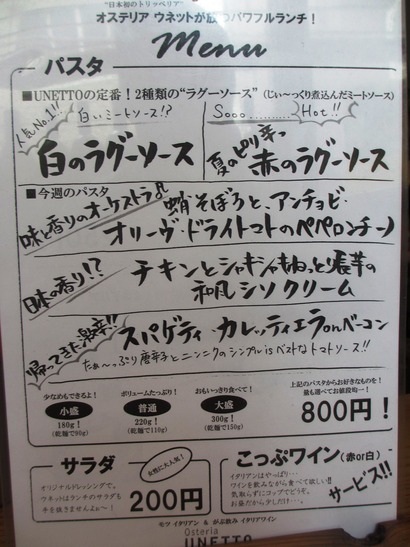 "日本初のトリッペリア"
オステリア ウネットが放つパワフルランチ！
Menu
パスタ
■UNETTOの定番！2種類の"ラグーソース"（じぃ〜っくり煮込んだミートソース）
人気No.1!! 白いミートソース!?
白のラグーソース
Sooo.........Hot!!
夏のピリ辛っ 赤のラグーソース
■今週のパスタ
味と香りのオーケストラ♫ 蛸そぼろと、アンチョビ・
オリーヴ・ドライトマトのペペロンチーノ
日本の香り!? チキンとシャキシャキねっとり長芋の
和風シソクリーム
帰ってきた激辛!! スパゲティ・カレッティエラonベーコン
たぁ〜っぷり唐辛子とニンニクのシンプルisベストなトマトソース!!
少なめもできるよ！
小盛
180g！
（乾麺で90g）
ボリュームたっぷり！
普通
220g！
（乾麺で110g）
おもいっきり食べて！
大盛
300g！
（乾麺で150g）
上記のパスタからお好きなものを！
量も選べてお値段均一！
800円！
サラダ
女性に大人気！
オリジナルドレッシングで。
ウネットはランチのサラダも
手を抜きませんよぉ〜！
200円
こっぷワイン（赤or白）
イタリアンはやっぱり…
ワインを飲みながら食べて欲しい!!
気取らずにコップでどうぞ。
お昼だから少しだけ…
サービス!!
モツ イタリアン & がぶ飲み イタリアワイン
Osteria
UNETTO